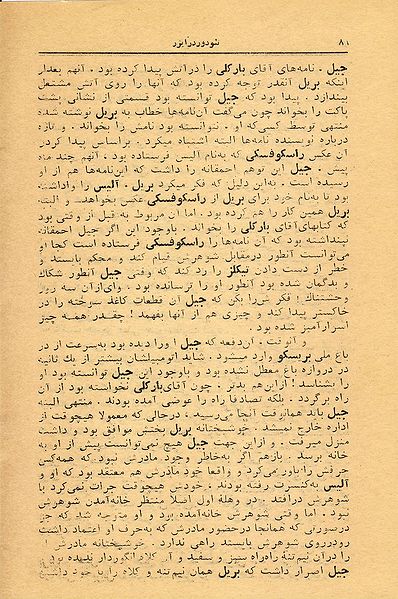 تئودور درایزر ۸۱
جیل ، نامه‌های آقای بارکلی را در آتش پیدا کرده بود . آنهم بعداز
اینکه بریل آنقدر توجه کرده بود که آنها را روی آتش مشتعل
بیندازد . پیدا بود که جیل توانسته بود قسمتی از نشانی پشت
پاکت را بخواند چون می‌گفت آن‌نامه‌ها خطاب به بریل نوشته شده
منتهی توسط کسی‌که او ، نتوانسته بود نامش را بخواند . و تازه
درباره نویسنده نامه‌ها البته اشتباه میکرد . براساس پیدا کردن
آن عکس راسکوفسکی که‌به‌نام آلیس فرستاده بود ، آنهم چند ماه
پیش . جیل این توهم احمقانه را داشت که این‌نامه‌ها هم از او
رسیده است . به‌این دلیل که فکر میکرد بریل ، آلیس را واداشته
بود تا به‌نام خود برای بریل از راسکوفسکی عکس بخواهد . و البته
بریل همین کار را هم کرده بود . اما آن مربوط به قبل از وقتی بود
که کتابهای آقای بارکلی را بخواند . باوجود این اگر جیل احمقانه
نپنداشته بود که آن نامه‌ها را راسکوفسکی فرستاده است کجا او
می‌توانست آنطور درمقابل شوهرش قیام کند و محکم بایستد و
خطر از دست دادن تیکلز را رد کند که وقتی جیل آنطور شکاک
و بدگمان شده بود آنطور او را ترسانده بود . وای‌از‌آن سه روز
وحشتناک ! فکر ش‌را بکن که جیل آن قطعات کاغذ سوخته را در
خاکستر پیدا کند و چیزی هم از آنها بفهمد ! چقدر همه چیز
اسرارآمیز شده بود .
و آنوقت ، آن‌دفعه که جیل او را دیده بود به‌سرعت از در
باغ ملی بریسکو وارد میشود . شاید اتومبیلشان بیشتر از یک ثانیه
در دروازه باغ معطل نشده بود و باوجود این جیل توانسته بود او
را بشناسد ! ازاین‌هم بدتر . چون آقای‌بارکلی نخواسته بود از آن
راه برگردد . بلکه تصادفاً راه را عوضی آمده بودند . منتهی البته
جیل باید همانوقت آنجا می‌رسید ، درحالی که معمولا هیچوقت از
اداره خارج نمیشد . خوشبختانه بریل بخش موافق بود و داشت
منزل میرفت . و ازاین جهت جیل هیچ نمی‌توانست پیش از او به
خانه برسد . بازهم اگر به‌خاطر وجود مادرش نبود که همه‌کس
حرفش را باور می‌کرد و واقعاً خود مادرش هم معتقد بود که او و
آلیس به‌کنسرت رفته بودند ، خودش هیچوقت جرأت نمی‌کرد با
شوهرش درافتد . در وهلهٔ اول اصلا منتظر خانه‌آمدن شوهرش
نبود . اما وقتی شوهرش خانه‌آمده بود و او متوجه شد که جز
درصورتی که همانجا درحضور مادرش که به‌حرف او اعتماد داشت
رودرروی شوهرش بایستد راهی ندارد . خوشبختانه مادرش
را در آن نیم‌تنهٔ راه‌راه سبز و سفید و آن کلاه لگوردار ندیده بود
جیل اصرار داشت که بریل همان نیم‌تنه و کلاه را خود داشته